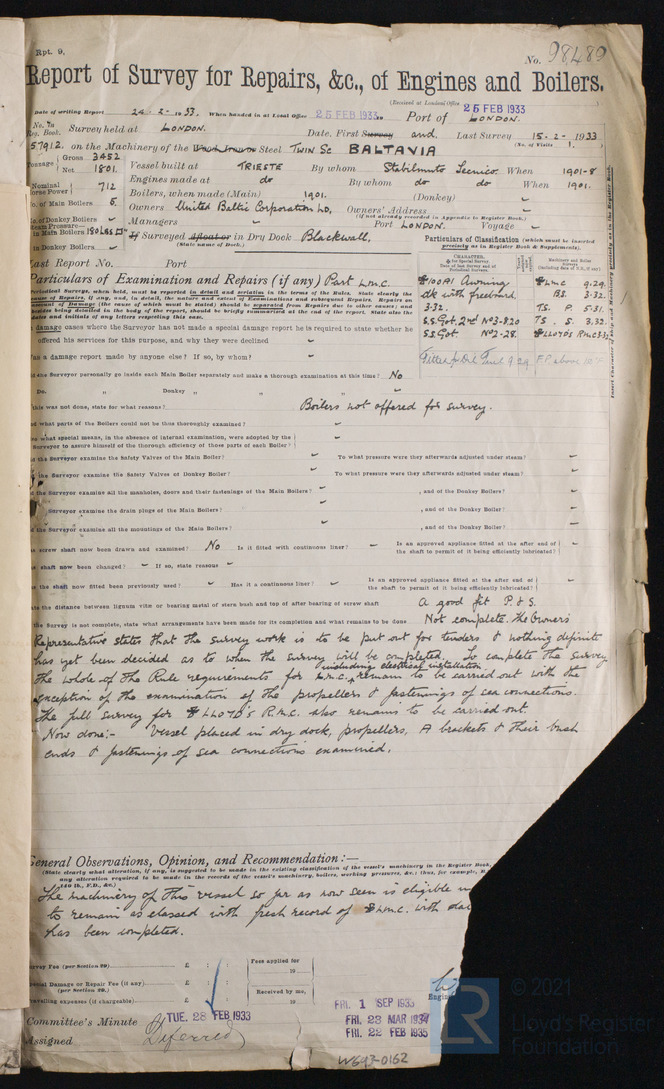 Rpt. 9.
No. 98489
Report of Survey for Repairs, &c., of Engines and Boilers.
(Received at London Office 25 FEB 1933)
Date of writing Report 24-2-1933. When handed in at Local Office 25 FEB 1933 Port of LONDON.
No. in Reg. Book. Survey held at LONDON. Date, First Survey and Last Survey 15-2-1933
(No. of Visits 1.)
57912. on the Machinery of the Wood Iron or Steel TWIN Sc BALTAVIA
Tonnage Gross 3452
Net 1801.
Vessel built at TRIESTE By whom Stabilimento Tecnico. When 1901-8
Engines made at do By whom do do When 1901.
Nominal Horse Power 712
Boilers, when made (Main) 1901. (Donkey)
No. of Main Boilers 6.
Owners United Baltic Corporation Ld, Owners' Address
(If not already recorded in Appendix to Register Book.)
No. of Donkey Boilers
Managers Port LONDON. Voyage
Steam Pressure in Main Boilers 180 lbs
If Surveyed Afloat or in Dry Dock Blackwall,
(State name of Dock.)
in Donkey Boilers
Particulars of Classification (which must be inserted precisely as in Register Book & Supplements).
Last Report No. Port
Particulars of Examination and Repairs (if any) Part L.M.C.
100A1 Awning
dk with freeboard
3.32.
S.S. Got. 2nd No3-8.20
S.S. Got. No2-28.
Fitted for Oil Fuel 9.29
LMC 9.29.
B.S. 3.32.
TS. P. 5.31.
TS. S. 3.32.
LLOYD'S RMC
F.P. above 150°F
Insert Character of Ship and Machinery precisely as in the Register Book.
Periodical Surveys, when held, must be reported in detail and seriatim in the terms of the Rules. State clearly the
causes of Repairs, if any, and, in detail, the nature and extent of Examinations and subsequent Repairs. Repairs on
account of Damage (the cause of which must be stated) should be separated from Repairs due to other causes; and
besides being detailed in the body of the report, should be briefly summarised at the end of the report. State also the
dates and initials of any letters respecting this case.
damage cases where the Surveyor has not made a special damage report he is required to state whether he
offered his services for this purpose, and why they were declined
Was a damage report made by anyone else? If so, by whom?
Did the Surveyor personally go inside each Main Boiler separately and make a thorough examination at this time? No
Do. " Donkey " "
If this was not done, state for what reasons? Boilers not offered for survey.
And what parts of the Boilers could not be thus thoroughly examined?
Also what special means, in the absence of internal examination, were adopted by the
Surveyor to assure himself of the thorough efficiency of those parts of each Boiler?
Did the Surveyor examine the Safety Valves of the Main Boiler? To what pressure were they afterwards adjusted under steam?
Did the Surveyor examine the Safety Valves of Donkey Boiler? To what pressure were they afterwards adjusted under steam?
Did the Surveyor examine all the manholes, doors and their fastenings of the Main Boilers? , and of the Donkey Boilers?
Did the Surveyor examine the drain plugs of the Main Boilers? , and of the Donkey Boilers?
Did the Surveyor examine all the mountings of the Main Boilers? , and of the Donkey Boilers?
Has screw shaft now been drawn and examined? No Is it fitted with continuous liner? Is an approved appliance fitted at the after end of the shaft to permit of it being efficiently lubricated?
Has shaft now been changed? If so, state reasons
Has the shaft now fitted been previously used? Has it a continuous liner? Is an approved appliance fitted at the after end of the shaft to permit of it being efficiently lubricated?
State the distance between lignum vitæ or bearing metal of stern bush and top of after bearing of screw shaft A good fit P. & S.
If the Survey is not complete, state what arrangements have been made for its completion and what remains to be done Not complete. The Owners
Representative states that the survey work is to be put out for tenders & nothing definite
has yet been decided as to when the survey will be completed. To complete the survey
the whole of the Rule requirements for L.M.C. including electrical installation remain to be carried out with the
exception of the examination of the propellers & fastenings of sea connections.
The full survey for LLOYD'S R.M.C. also remains to be carried out.
Now done:- Vessel placed in dry dock, propellers, A brackets & their bush
ends & fastenings of sea connections examined.
General Observations, Opinion, and Recommendation:—
(State clearly what alteration, if any, is suggested to be made in the existing classification of the vessel's machinery in the Register Book,
any alteration required to be made in the records of the vessel's machinery, boilers, working pressures, &c.; thus, for example,
140 lb., F.D., &c.)
The machinery of this vessel so far as now seen is eligible
to remain as classed with fresh record of LMC. with
has been completed.
Survey Fee (per Section 29) £ : : Fees applied for
19
Special Damage or Repair Fee (if any) £ : :
(per Section 29.)
Received by me,
Travelling expenses (if chargeable) £ : : 19
Engin
Committee's Minute TUE. 28 FEB 1933
FRI. 1 SEP 1933
FRI. 23 MAR 1934
FRI. 22 FEB 1935
Assigned Deferred
W693-0162
LR
© 2021
Lloyd's Register
Foundation